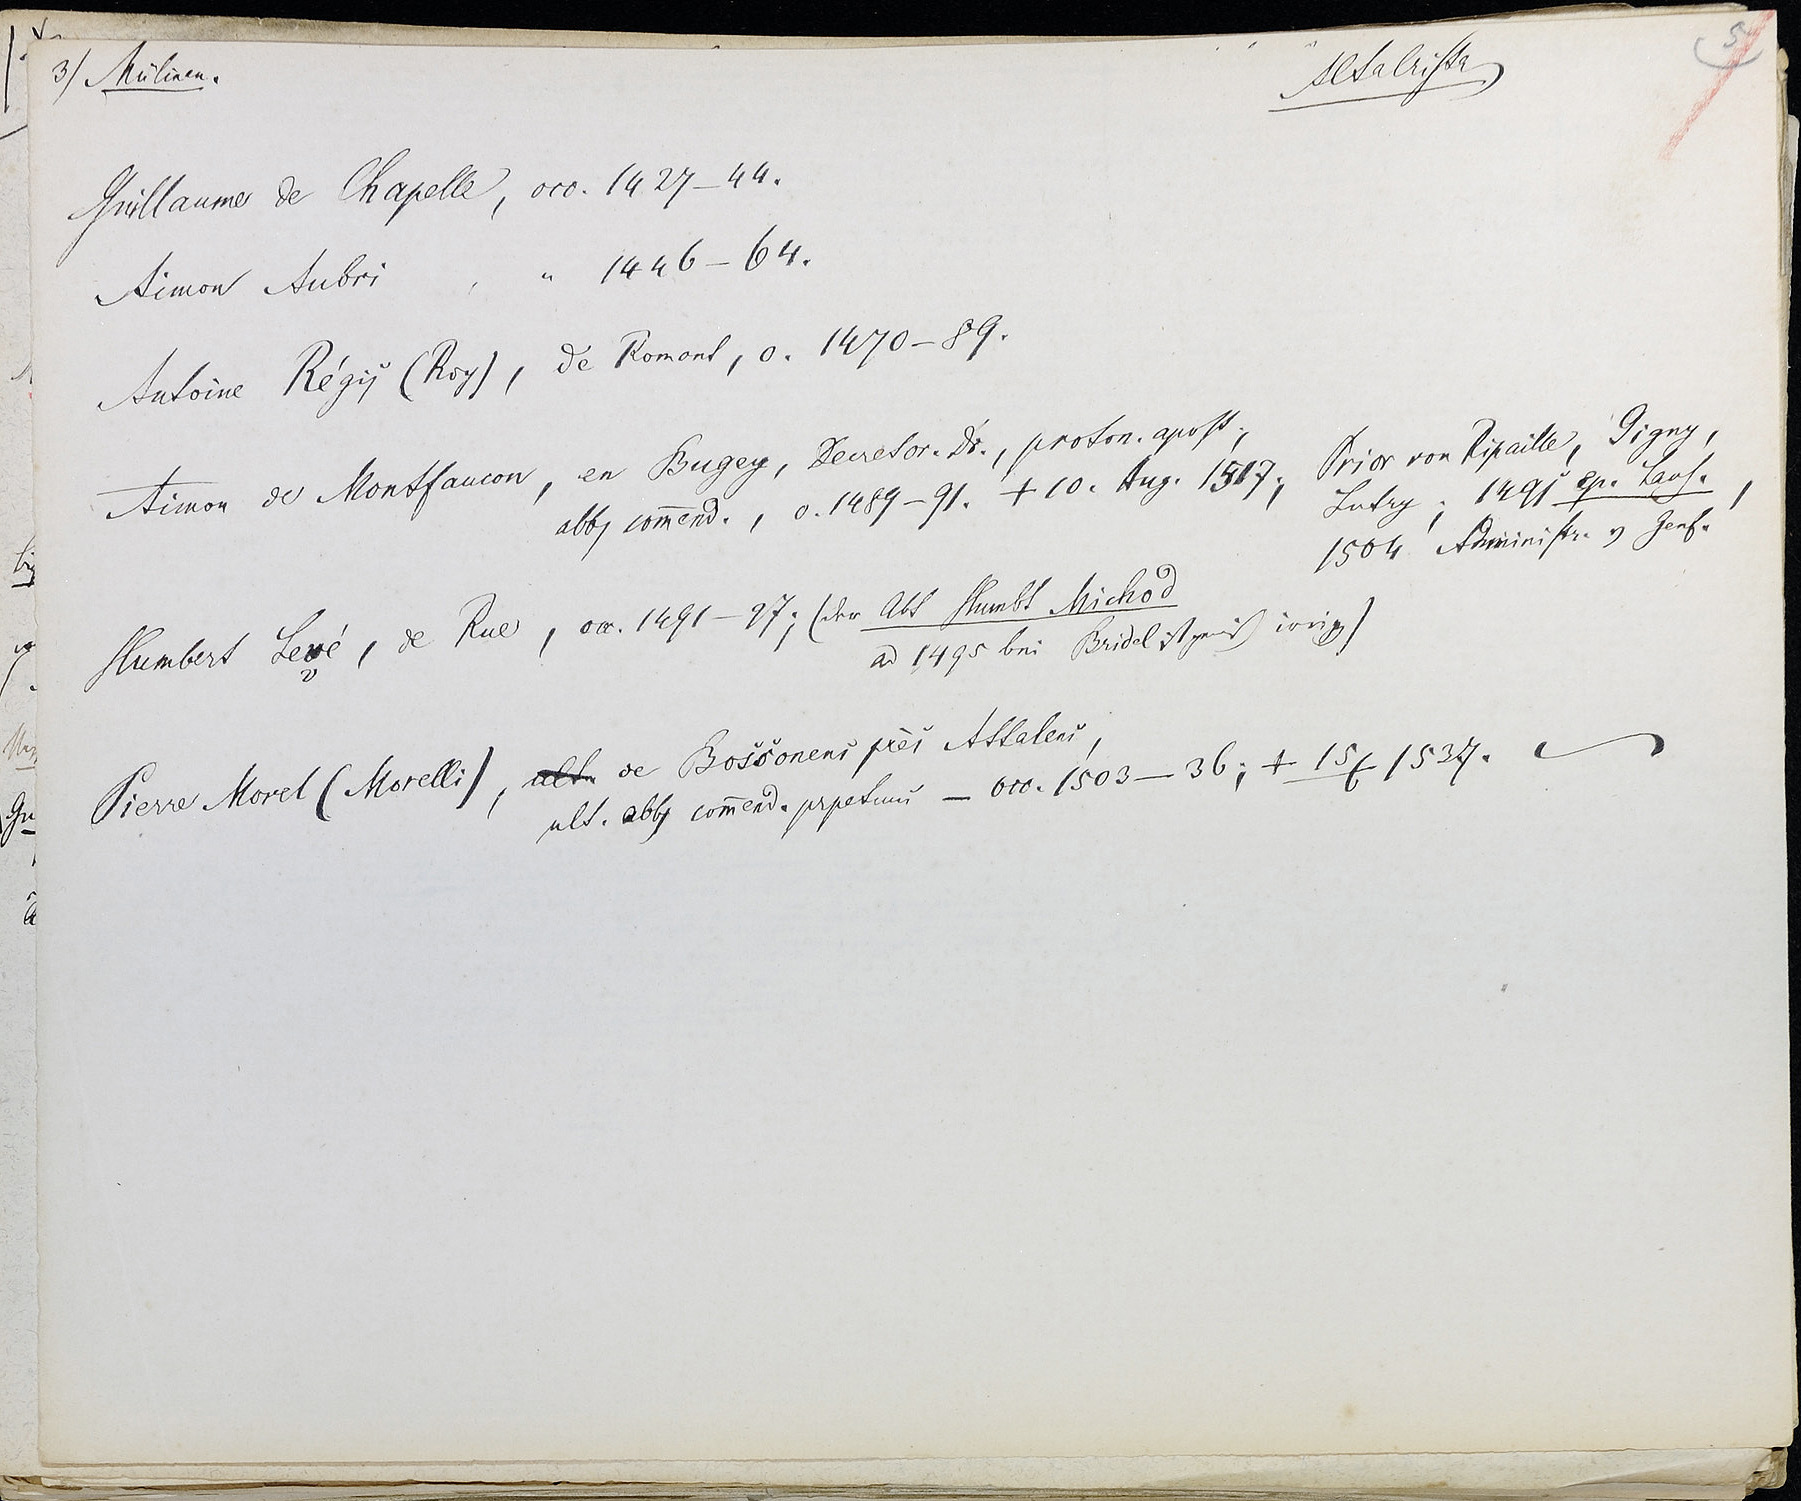 3) Mülinen.
Altacrista
5
Guillaume de Chapelle, occ. 1427–44.
Aimon Aubri , " 1446–64.
Antoine Régis (Roy), de Romont, o. 1470–89.
Aimon de Montfaucon, en Bugey, Decretor. Dr., proton. apost.,
abbs com̄end., o. 1489–91. + 10. Aug. 1517;
Prior von Ripaille, Gigny,
Lutry; 1491 ep. Laus.,
1504 Administr. v Genf.
Humbert Levé, de Rue, occ. 1491–97; (der Abt Humbt Michod
v
ad 1495 bei Bridel ist gewiß irrig)
Pierre Morel (Morelli), ult. de Bossonens près Attalens,
ult. abbs com̄end. prpetuus – occ. 1503–36; + 15/6 1537.